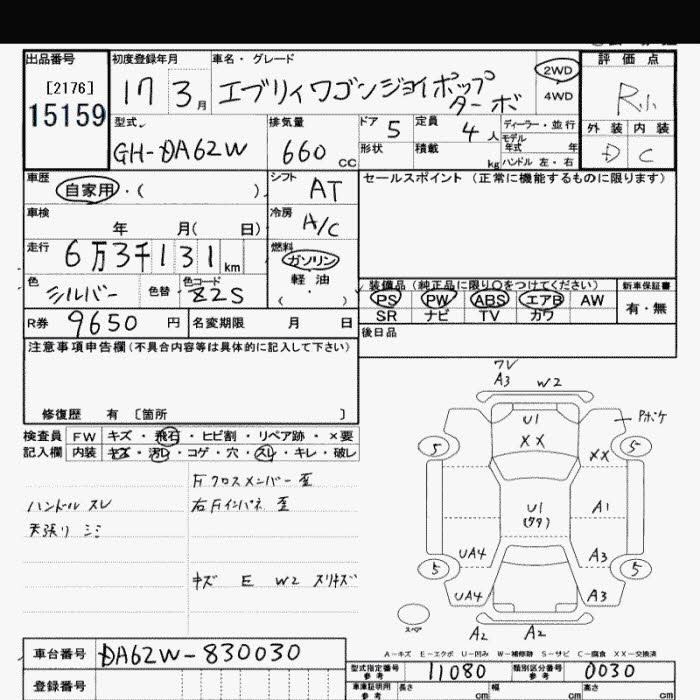 出品番号
[2176]
15159
初度登録年月
17 3 月
車名・グレード
エブリィワゴンジョイポップ
ターボ
2WD
4WD
評価点
R
外装 内装
D C
型式
GH-DA62W
排気量
660 cc
ドア 5
定員 4 人
形状
積載 kg
ディーラー・並行
モデル
年式 年
ハンドル 左・右
車歴
自家用・( )
シフト
AT
セールスポイント (正常に機能するものに限ります)
車検
年 月( 日)
冷房
A/C
走行
6万3千131 km
燃料
ガソリン
軽油
( )
色
シルバー
色替
色コード
Z2S
装備品(純正品に限り○をつけてください)
PS PW ABS エアB AW
SR ナビ TV カワ
新車保証書
有・無
R券 9650 円
名変期限 月 日
後日品
注意事項申告欄(不具合内容等は具体的に記入して下さい)
修復歴 有 〔箇所 〕
検査員 FW キズ・飛石・ヒビ割・リペア跡・×要
記入欄 内装 キズ・汚レ・コゲ・穴・スレ・キレ・破レ
Fクロスメンバー歪
ハンドル スレ
右Fインパネ 歪
天張り シミ
キズ E W2 スリキズ
ワレ
A3 W2
U1
XX
Pボケ
5 5
XX
U1
A1
UA4 A3
5 5
UA4 A3
スペア
A2 A2
A－キズ E－エクボ U－凹み W－補修跡 S－サビ C－腐食 XX－交換済
車台番号 DA62W-830030
登録番号
型式指定番号
参考
11080
類別区分番号
参考
0030
車庫証明用
参考
長さ cm
幅 cm
高さ cm